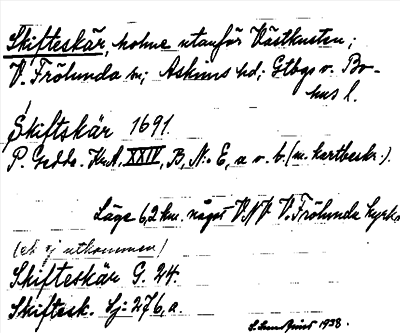 Skifteskär, holme utanför Västkusten;
V. Frölunda sn; Askims hd; Gtbgs o. Bo-
hus l.
Skiftskär 1691.
P. Gedda. K.A. XXIV, B, N:o E, a o. b. (m. kartbeskr.).
Läge 6,2 km. något V.NV V. Frölunda kyrka
(ek. ej utkommen)
Skifteskär G. 24.
Skiftesk. Sj: 276, a.
1938.